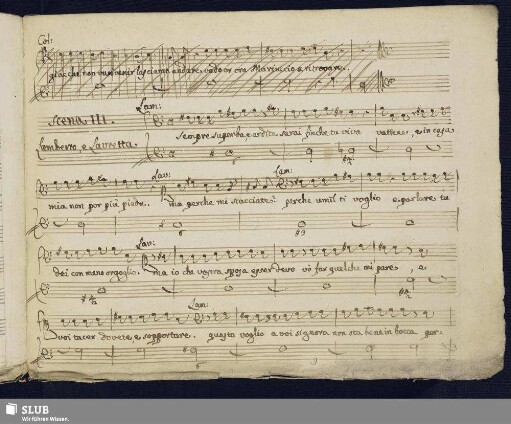 Col:
giacche non vuol venir lasciamo andare. vado or ora Marinccio a ritrovare.
Scena III.
Lam:
Lamberto, e Lauretta.
Sempre superba e ardita sarai finche tu viva vattene, e in casa
Lau: Lam:
mia non por più piede. ma perche mi scacciate? perche umil ti voglio e parlare tu
Lau:
dei con meno orgoglio. ma io che vostra sposa esser devo vò far quel che mi pare, e
Lam:
voi tacer dovete, e sopportare. questo voglio a voi signora non sta bene in bocca per-
SLUB
Wir führen Wissen.